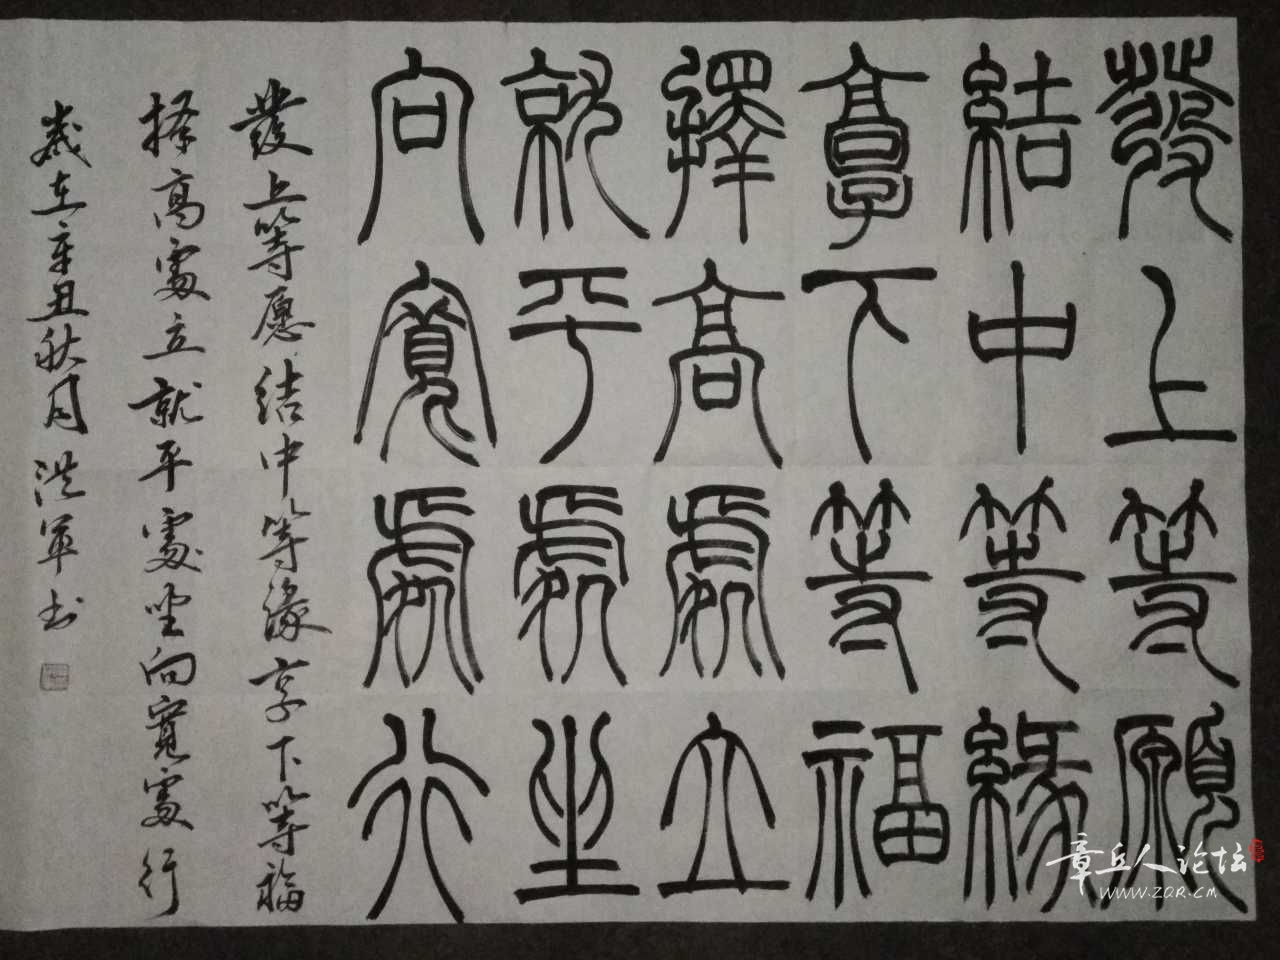 發上等願
結中等緣
享下等福
擇高處立
就平處坐
向寬處行
發上等愿结中等缘享下等福
择高處立就平處坐向寬處行
歲在辛丑秋月洪軍书
章丘人论坛
www.ZQR.CM